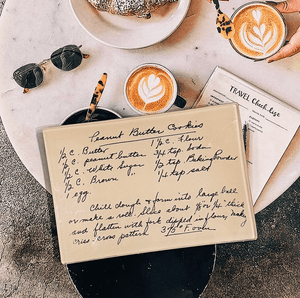 Peanut Butter Cookies
½ C. Butter 1½ C. Flour
½ C. peanut butter ¾ tsp soda
½ C. White Sugar ½ tsp Baking Powder
½ C. Brown ¼ tsp salt
1 egg
Chill dough & form into large ball
or make a roll, slice about ⅛ or ¼" thick
and flatten with fork dipped in flour, make
criss-cross pattern 375° F. oven
TRAVEL Check-list